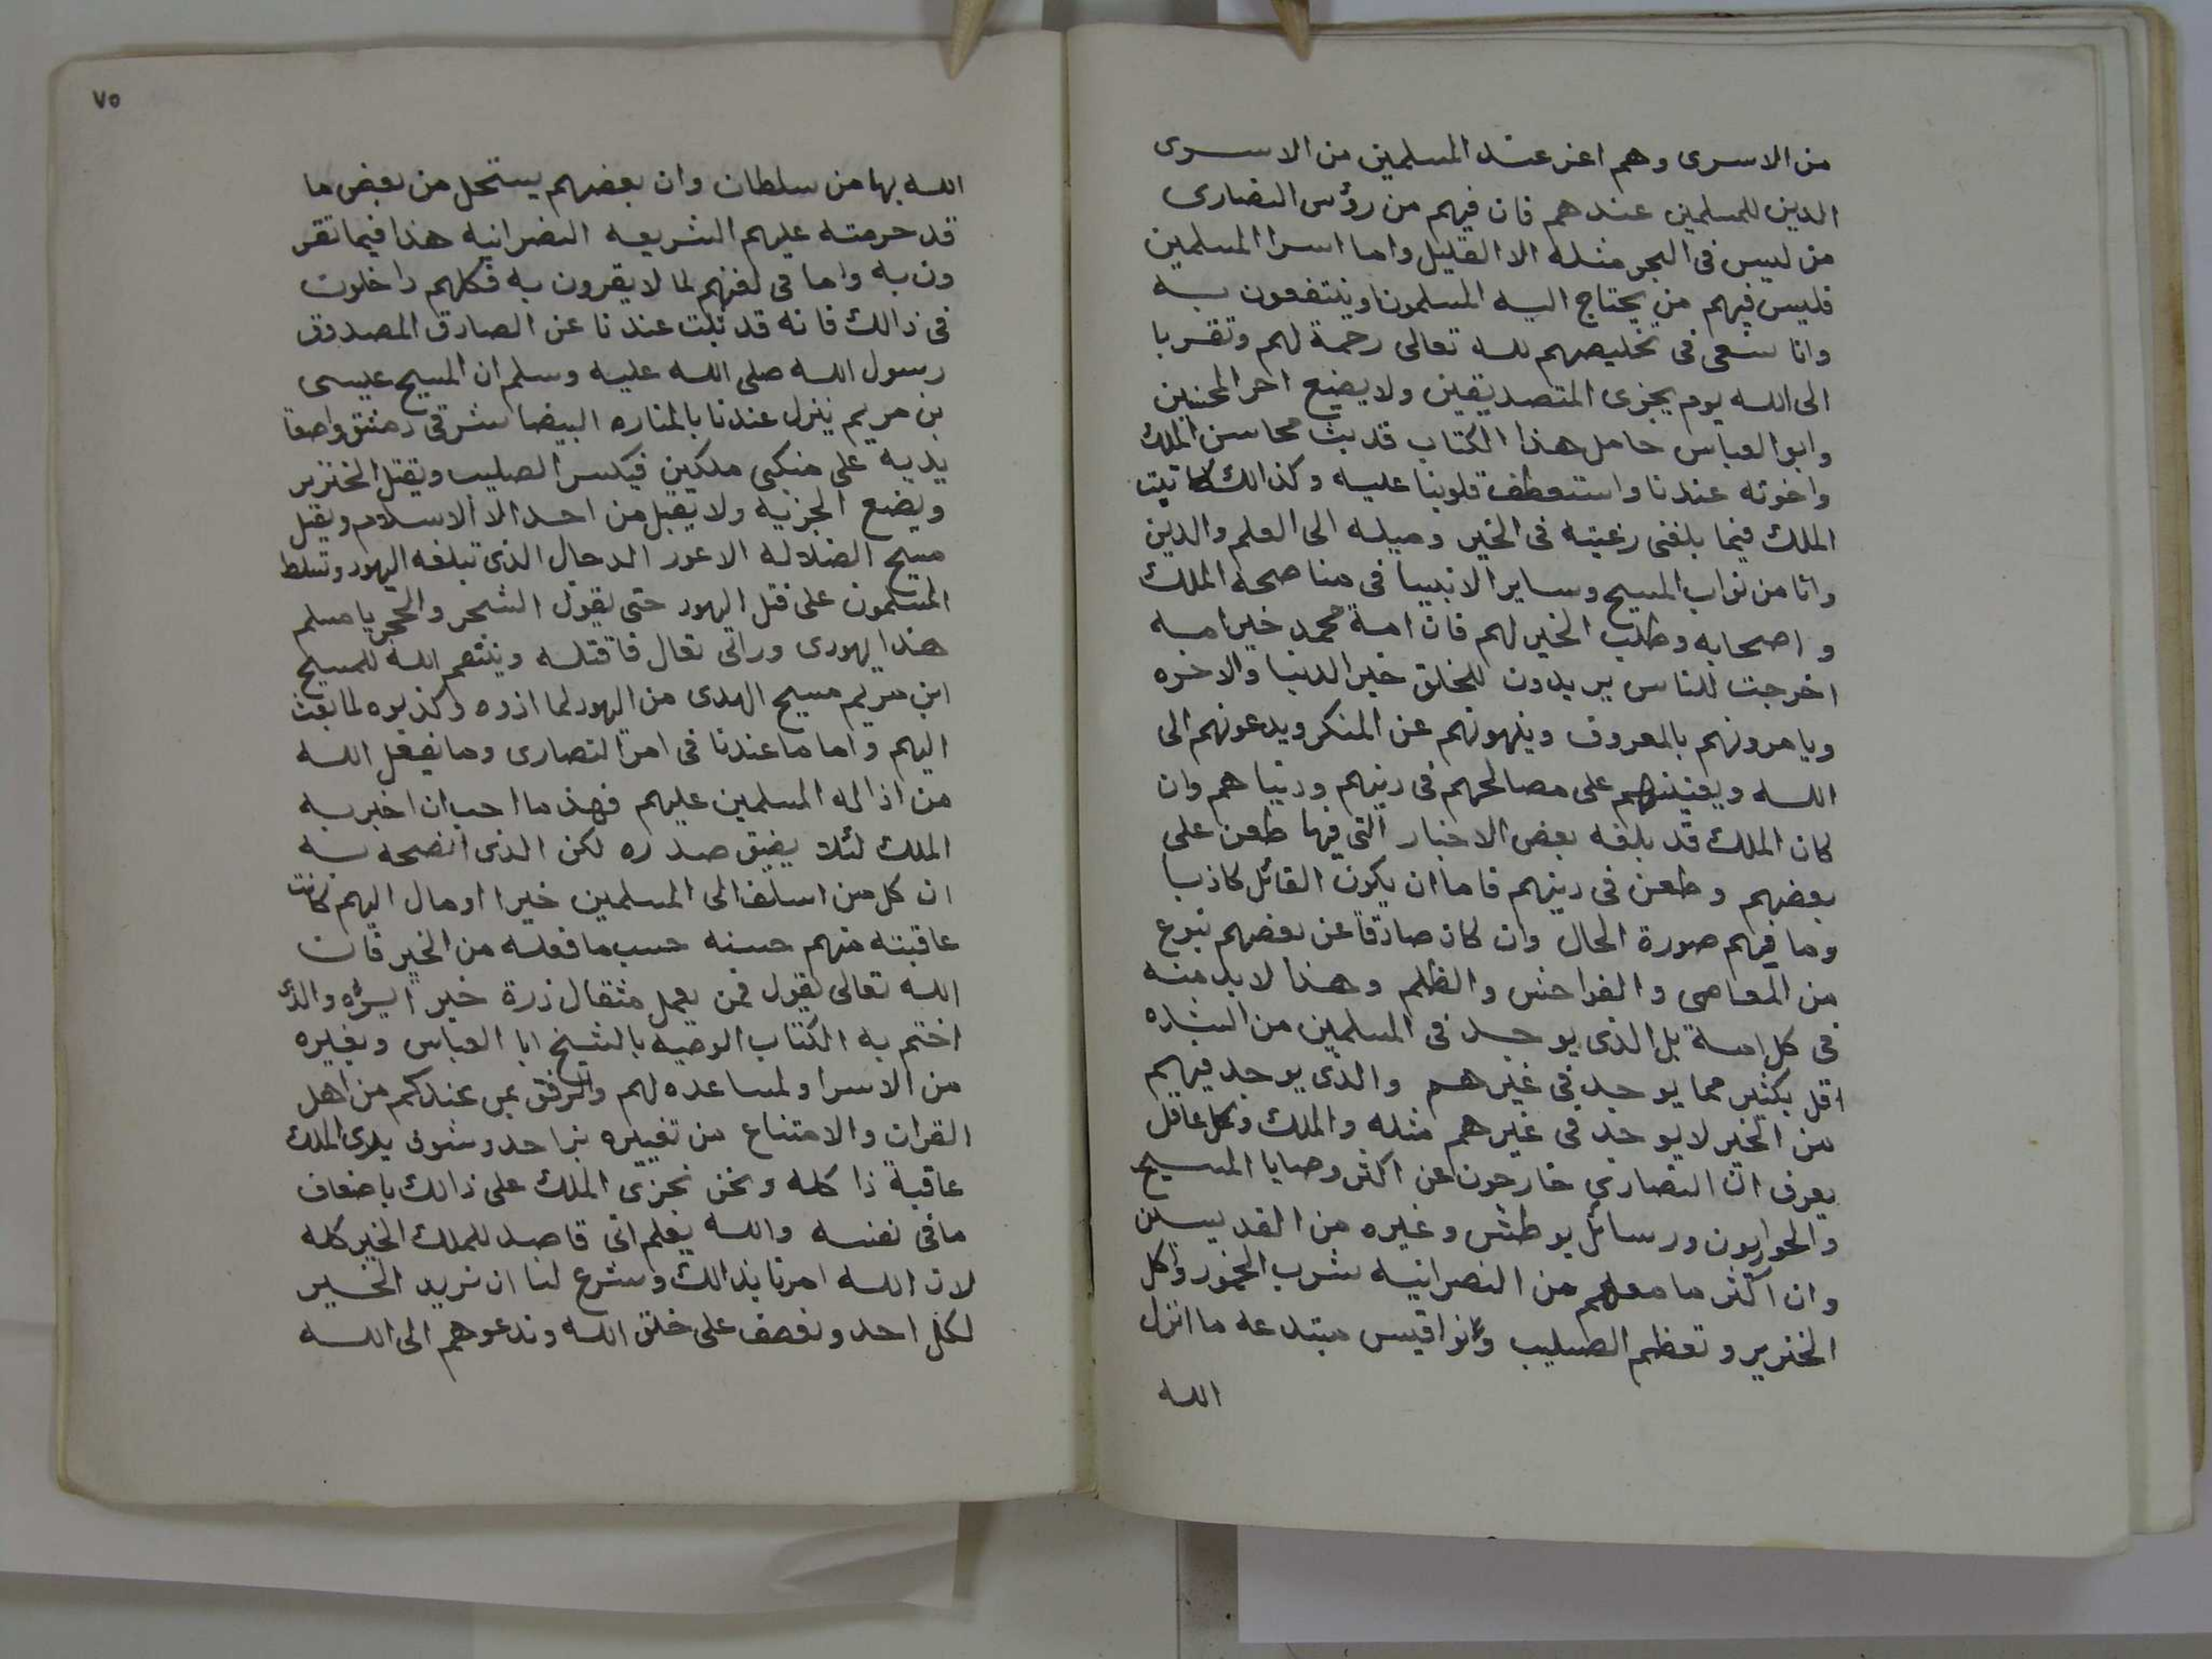 من الاسرى وهم اعز عند المسلمين من الاسرى
الدين للمسلمين عندهم فان فيهم من رؤس النصارى
من ليس فى البحر مثله الا القليل واما اسرا المسلمين
فليس فيهم من يحتاج اليه المسلمون او ينتفعون به
وانا نسعى فى تخليصهم لله تعالى رحمة لهم وتقربا
الى الله يوم يجزى المتصديقين ولا يضيع اجر المحسنين
وابو العباس حامل هذا الكتاب قد بث محاسن الملك
واخوته عندنا واستعطف قلوبنا عليه وكذالك كاتبت
الملك فيما بلغنى رغبته فى الخير وميله الى العلم والدين
وانا من نواب المسيح وساير الانبيا فى مناصحة الملك
واصحابه وطلب الخير لهم فان امة محمد خير امه
اخرجت للناس يريدون للخلق خير الدنيا والاخره
ويامرونهم بالمعروف وينهونهم عن المنكر ويدعونهم الى
الله ويعينهم على مصالحهم فى دينهم ودنياهم وان
كان الملك قد بلغه بعض الاخبار التى فيها طعن على
بعضهم وطعن فى دينهم فاما ان يكون القائل كاذبا
وما فيهم صورة الحال وان كان صادقا عن بعضهم بنوع
من المعاصى والفواحش والظلم وهذا لابد منه
فى كل امة بل الذى يوجد فى المسلمين من الشاره
اقل بكثير مما يوجد فى غيرهم والذى يوجد فيهم
من الخير لا يوجد فى غيرهم مثله والملك وكل عاقل
يعرف ان النصارى خارجون عن اكثر وصايا المسيح
والحواريون ورسائل بوطش وغيره من القديسين
وان اكثر ما معهم من النصرانيه شرب الخمور واكل
الخنزير وتعظم الصليب وانواقيس مبتدعه ما انزل
الله
٧٥
الله بها من سلطان وان بعضهم يستحل من بعض ما
قد حرمته عليهم الشريعه النصرانيه هذا فيما تقر
ون به واما فى لفنهم لما لا يقرون به فكلهم داخلون
فى ذالك فانه قد ثبت عندنا عن الصادق المصدوق
رسول الله صلى الله عليه وسلم ان المسيح عيسى
بن مريم ينزل عندنا بالمناره البيضا شرقى دمشق واضعا
يديه على منكبى ملكين فيكسر الصليب ويقتل الخنزير
ويضع الجزيه ولا يقبل من احد الا الاسلام ويقتل
مسيح الضلاله الاعور الدجال الذى تبلغه اليهود وتسلط
المسلمون على قتل اليهود حتى يقول الشجر والحجر يا مسلم
هذا يهودى وراتى تعال فاقتله وينتقم الله للمسيح
ابن مريم مسيح الهدى من اليهود لما اذوه وكذبوه لما بعث
اليهم واما ما عندنا فى امر النصارى وما يفعل الله
من اذاله المسلمين عليهم فهذا ما احب ان اخبر به
الملك لئلا يضيق صدره لكن الذى انصحه به
ان كل من اسلف الى المسلمين خيرا او مال اليهم كانت
عاقبته منهم حسنه حسب ما فعله من الخير فان
الله تعالى يقول فمن يعمل مثقال ذرة خيرا يره والذى
اختم به الكتاب الوصيه بالشيخ ابا العباس وبغيره
من الاسرا ولمساعده لهم والرفق بمن عندكم من اهل
القران والامتناع من تغييره بزاحد وسوف يرى الملك
عاقبة ذا كله ونحن نجزى الملك على ذالك باضعاف
ما فى نفسه والله يعلم انى قاصد للملك الخير كله
لان الله امرنا بذالك وشرع لنا ان نريد الخير
لكل احد ونعصف على خلق الله وندعوهم الى الله